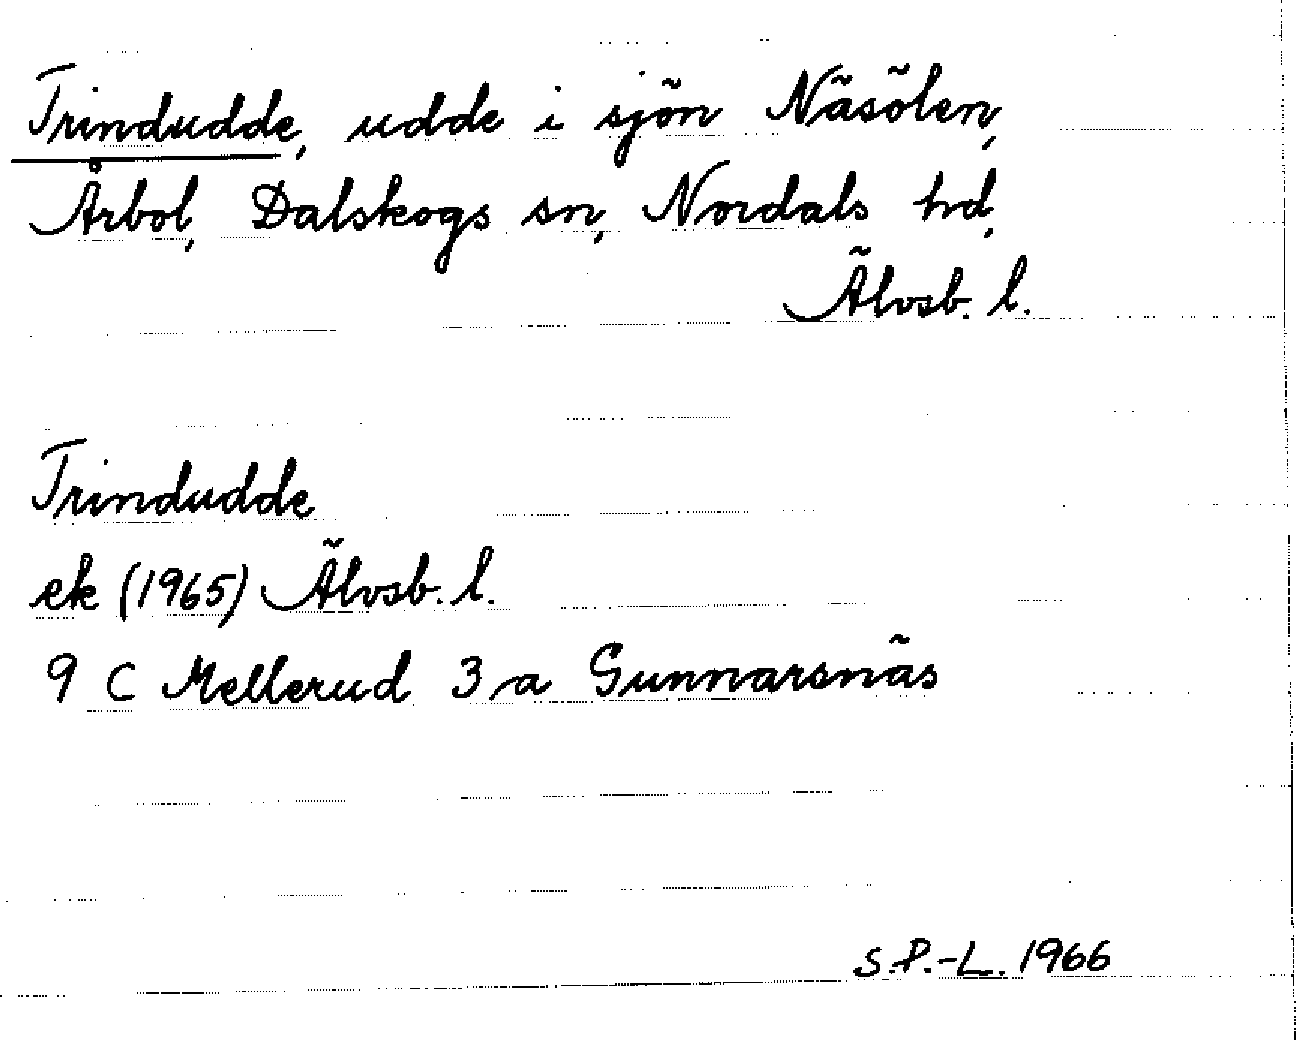 Trindudde, udde i sjön Näsölen,
Årbol, Dalskogs sn, Nordals hd,
Älvsb. l.
Trindudde
ek (1965) Älvsb. l.
9 C Mellerud 3 a Gunnarsnäs
S.P.-L. 1966